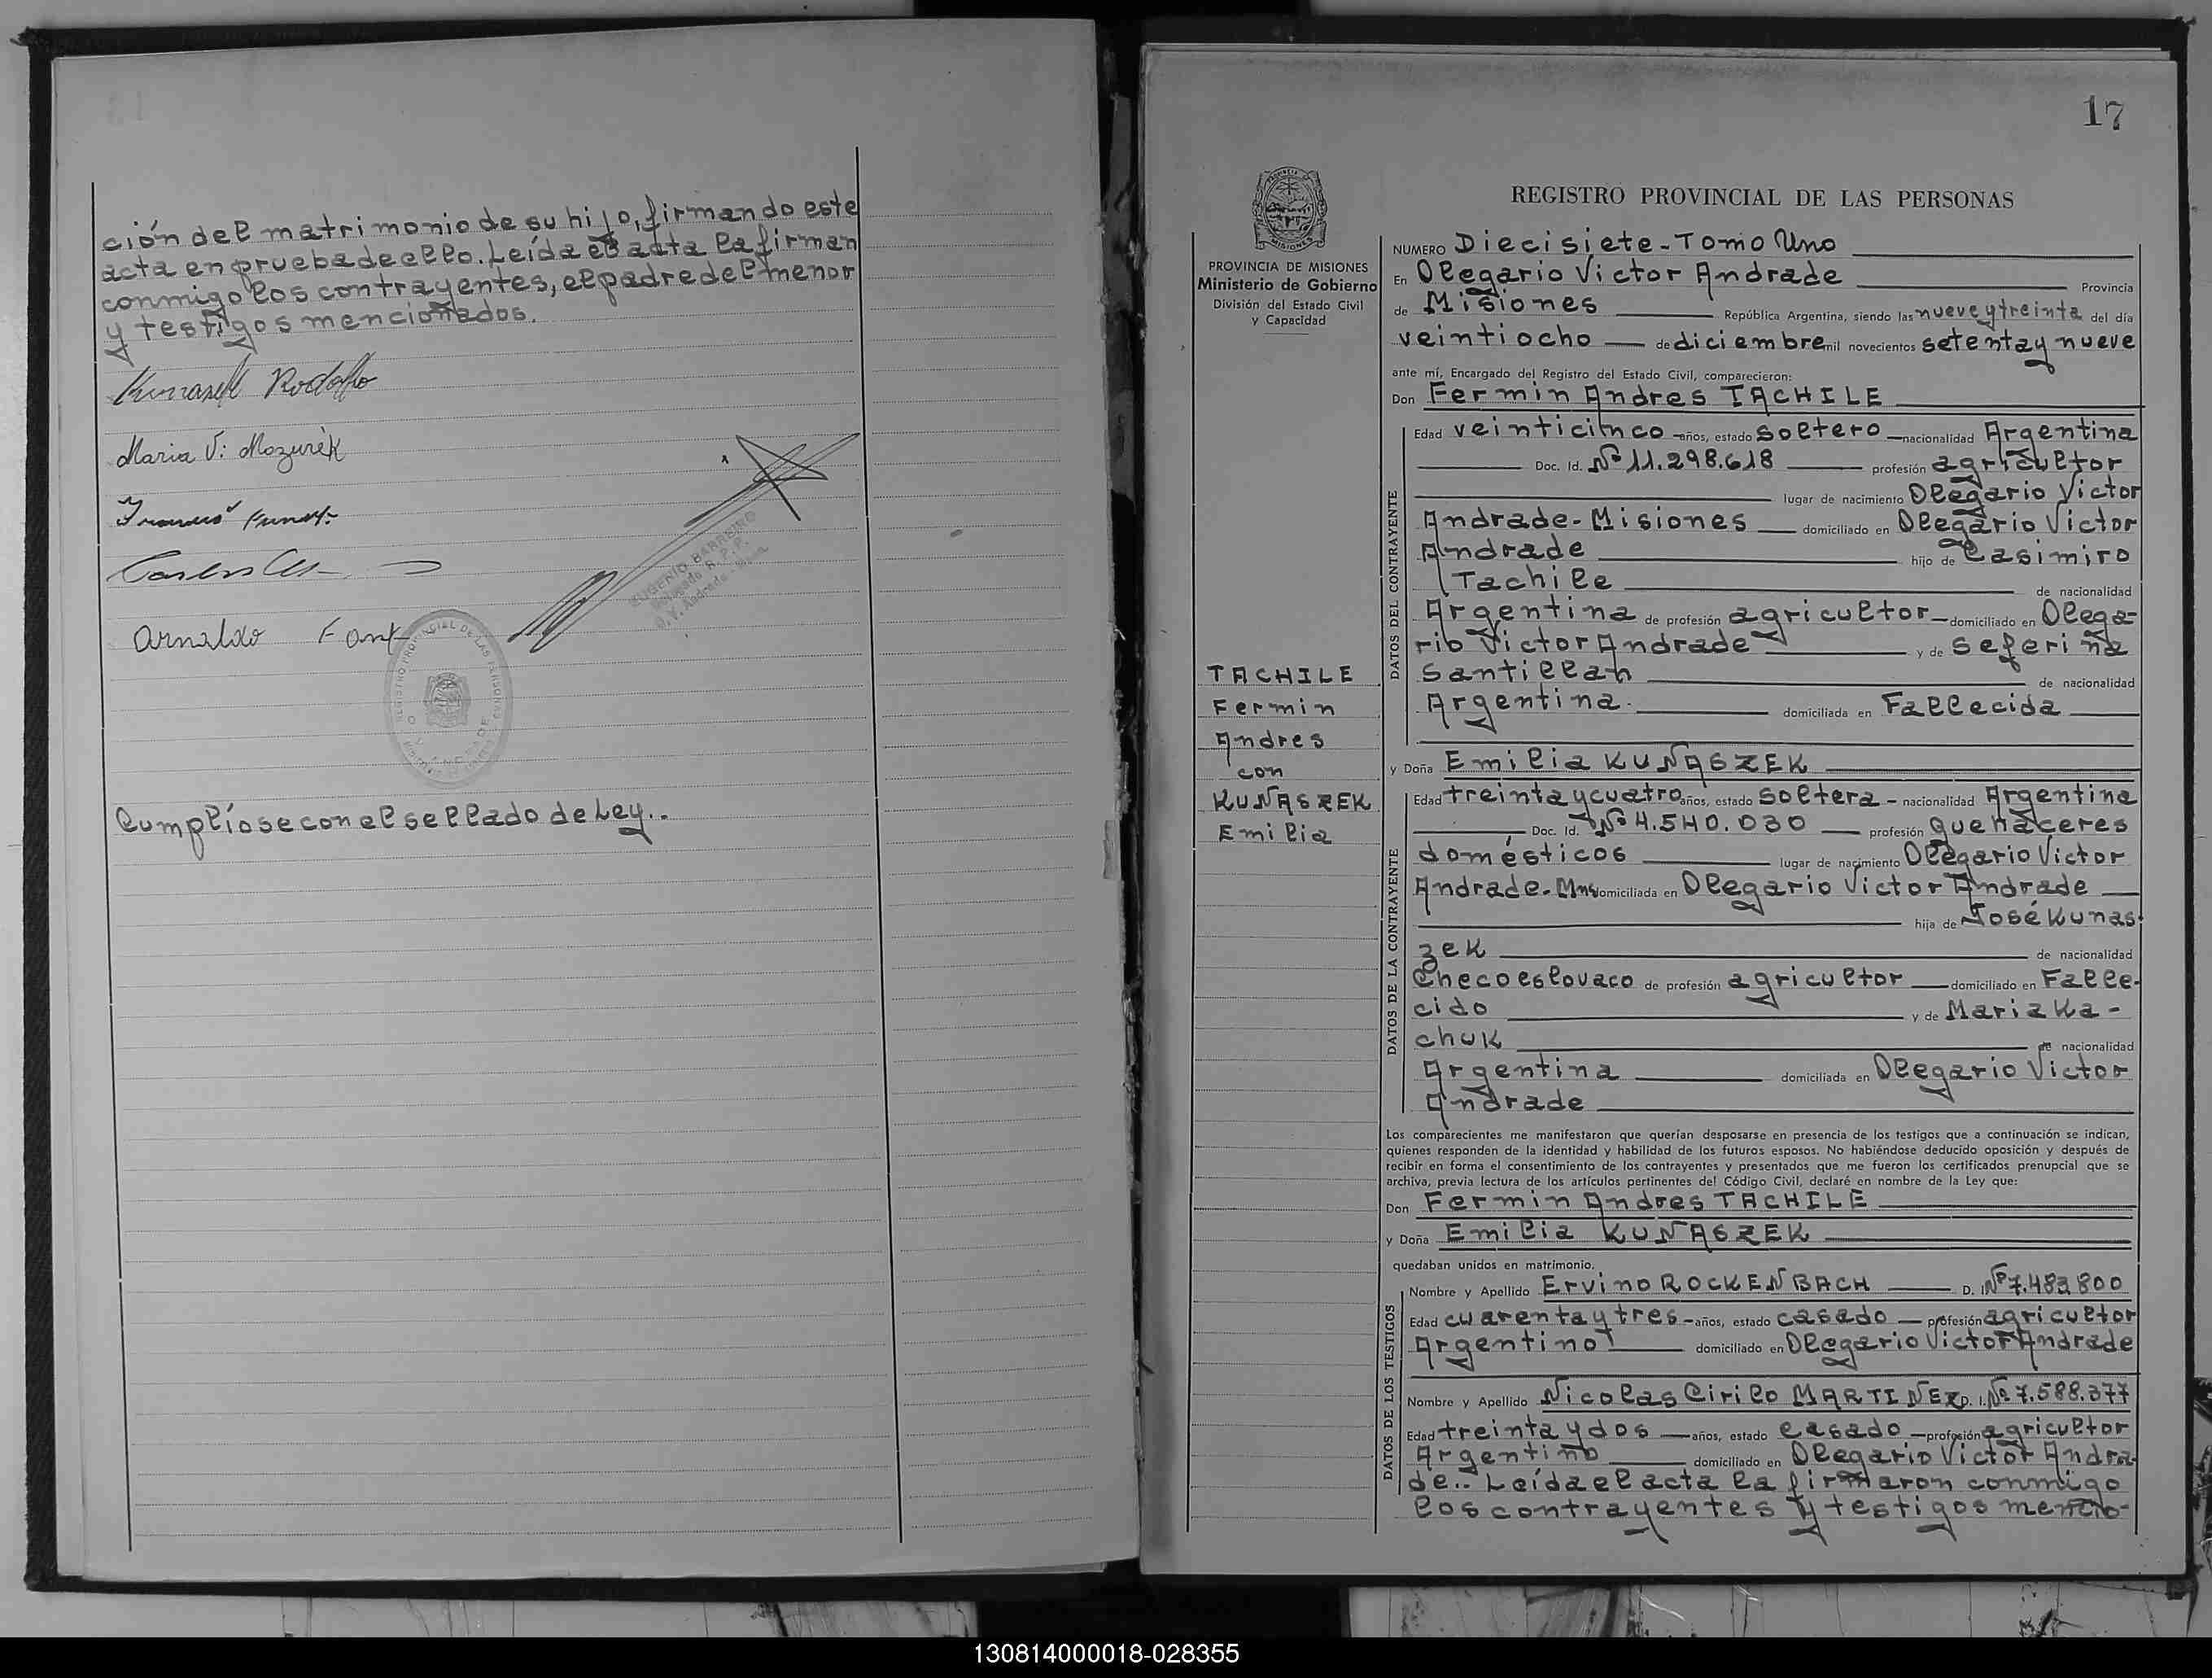 ción del matrimonio de su hijo, firmando este
acta en prueba de ello. Leída el acta la firman
conmigo los contrayentes, el padre del menor
y testigos mencionados.
Rodolfo
Maria V. Mozurek
Arnaldo
EUGENIO BARREIRO
REGISTRO PROVINCIAL DE LAS PERSONAS
Cumplíose con el sellado de Ley..
17
PROVINCIA DE MISIONES
Ministerio de Gobierno
División del Estado Civil
y Capacidad
TACHILE
Fermin
Andres
con
KUNASZEK
Emilia
REGISTRO PROVINCIAL DE LAS PERSONAS
NUMERO Diecisiete - Tomo Uno
En Olegario Victor Andrade Provincia
de Misiones República Argentina, siendo las nueve y treinta del día
veintiocho de diciembre mil novecientos setenta y nueve
ante mí, Encargado del Registro del Estado Civil, comparecieron:
Don Fermin Andres TACHILE
DATOS DEL CONTRAYENTE
Edad veinticinco años, estado soltero nacionalidad Argentina
Doc. Id. Nº 11.298.618 profesión agricultor
lugar de nacimiento Olegario Victor
Andrade - Misiones domiciliado en Olegario Victor
Andrade hijo de Casimiro
Tachile de nacionalidad
Argentina de profesión agricultor domiciliado en Olega-
rio Victor Andrade y de Seferina
Santillan de nacionalidad
Argentina. domiciliada en Fallecida
y Doña Emilia KUNASZEK
DATOS DE LA CONTRAYENTE
Edad treinta y cuatro años, estado soltera - nacionalidad Argentina
Doc. Id. Nº 4.540.030 profesión quehaceres
domésticos lugar de nacimiento Olegario Victor
Andrade - Mnes domiciliada en Olegario Victor Andrade
hija de José Kunas-
zek de nacionalidad
Checoeslovaco de profesión agricultor domiciliado en Falle-
cido y de Maria Ka-
chuk de nacionalidad
Argentina domiciliada en Olegario Victor
Andrade
Los comparecientes me manifestaron que querían desposarse en presencia de los testigos que a continuación se indican,
quienes responden de la identidad y habilidad de los futuros esposos. No habiéndose deducido oposición y después de
recibir en forma el consentimiento de los contrayentes y presentados que me fueron los certificados prenupcial que se
archiva, previa lectura de los artículos pertinentes del Código Civil, declaré en nombre de la Ley que:
Don Fermin Andres TACHILE
y Doña Emilia KUNASZEK
quedaban unidos en matrimonio.
DATOS DE LOS TESTIGOS
Nombre y Apellido Ervino ROCKENBACH D. I. Nº 7.483.800
Edad cuarenta y tres - años, estado casado profesión agricultor
Argentino domiciliado en Olegario Victor Andrade
Nombre y Apellido Nicolas Cirilo MARTINEZ D. I. Nº 7.588.377
Edad treinta y dos años, estado casado profesión agricultor
Argentino domiciliado en Olegario Victor Andra-
de.. Leída el acta la firmaron conmigo
los contrayentes y testigos mencio-
130814000018-028355